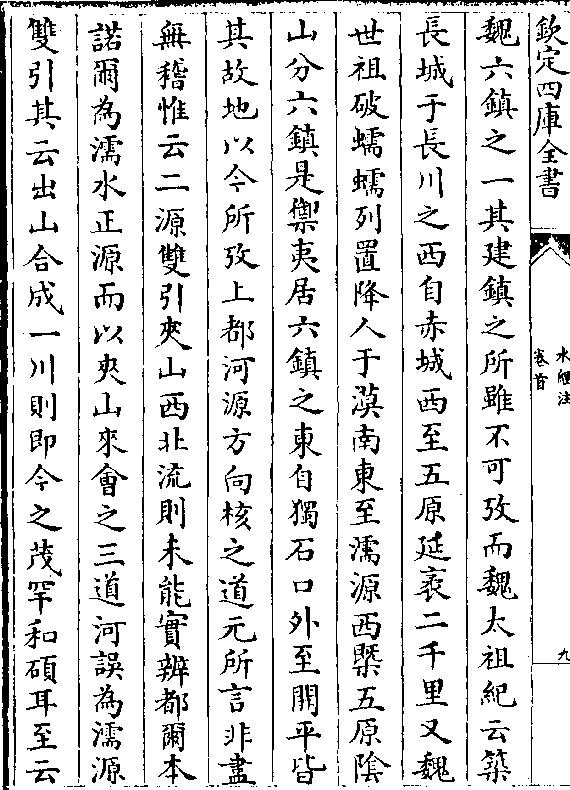 欽定四庫全書
水經注
卷首
九
魏六鎮之一其建鎮之所雖不可攷而魏太祖紀云築
長城于長川之西自赤城西至五原延袤二千里又魏
世祖破蠕蠕列置降人于漠南東至濡源西曁五原陰
山分六鎮是禦夷居六鎮之東自獨石口外至開平皆
其故地以今所攷上都河源方向核之道元所言非盡
無稽惟云二源雙引夾山西北流則未能實辨都爾本
諾爾為濡水正源而以夾山來會之三道河誤為濡源
雙引其云出山合成一川則即今之茂罕和碩耳至云